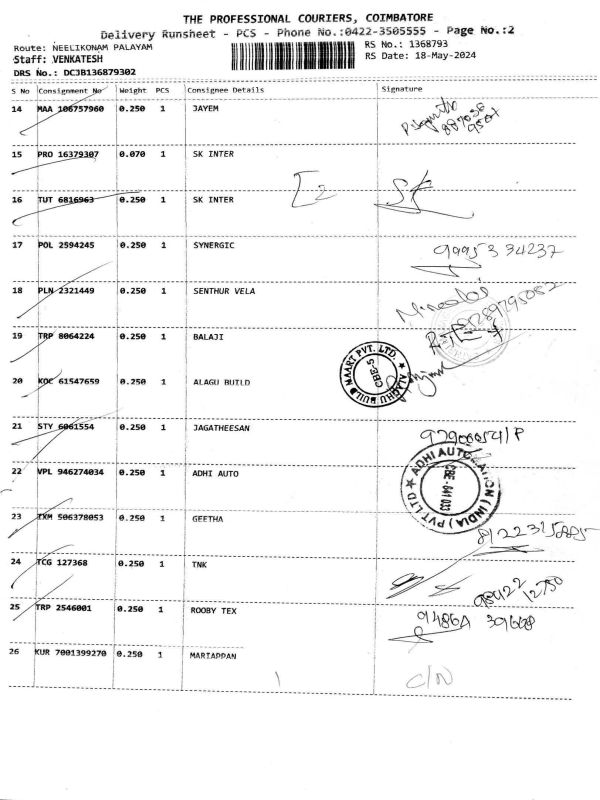 THE PROFESSIONAL COURIERS, COIMBATORE
Delivery Runsheet - PCS - Phone No.:0422-3505555 - Page No.:2
Route: NEELIKONAM PALAYAM
RS No.: 1368793
Staff: VENKATESH
RS Date: 18-May-2024
DRS No.: DCJB136879302
S No Consignment No Weight PCS Consignee Details Signature
14 MAA 106757960 0.250 1 JAYEM
15 PRO 16379307 0.070 1 SK INTER
[2 SK
16 TUT 6816963 0.250 1 SK INTER
17 POL 2594245 0.250 1 SYNERGIC 99953 34237
18 PLN 2321449 0.250 1 SENTHUR VELA
19 TRP 8064224 0.250 1 BALAJI
ALAGHU BUILD MAART PVT. LTD.
CBE-5
20 KOC 61547659 0.250 1 ALAGU BUILD
21 STY 6061554 0.250 1 JAGATHEESAN
22 VPL 946274034 0.250 1 ADHI AUTO
ADHI AUTOMATION (INDIA) PVT LTD
CBE - 641 033
23 IXM 506378053 0.250 1 GEETHA
24 TCG 127368 0.250 1 TNK
98422
12750
25 TRP 2546001 0.250 1 ROOBY TEX
26 KUR 7001399270 0.250 1 MARIAPPAN
C/N